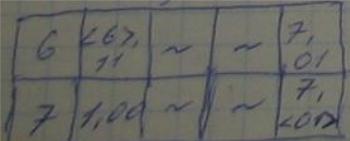 6 <6>, 11 ~ ~ 7, 01
7 1,00 ~ ~ 7, <01>